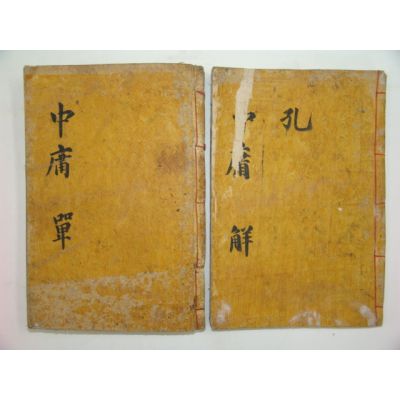 孔
中庸解
中庸單